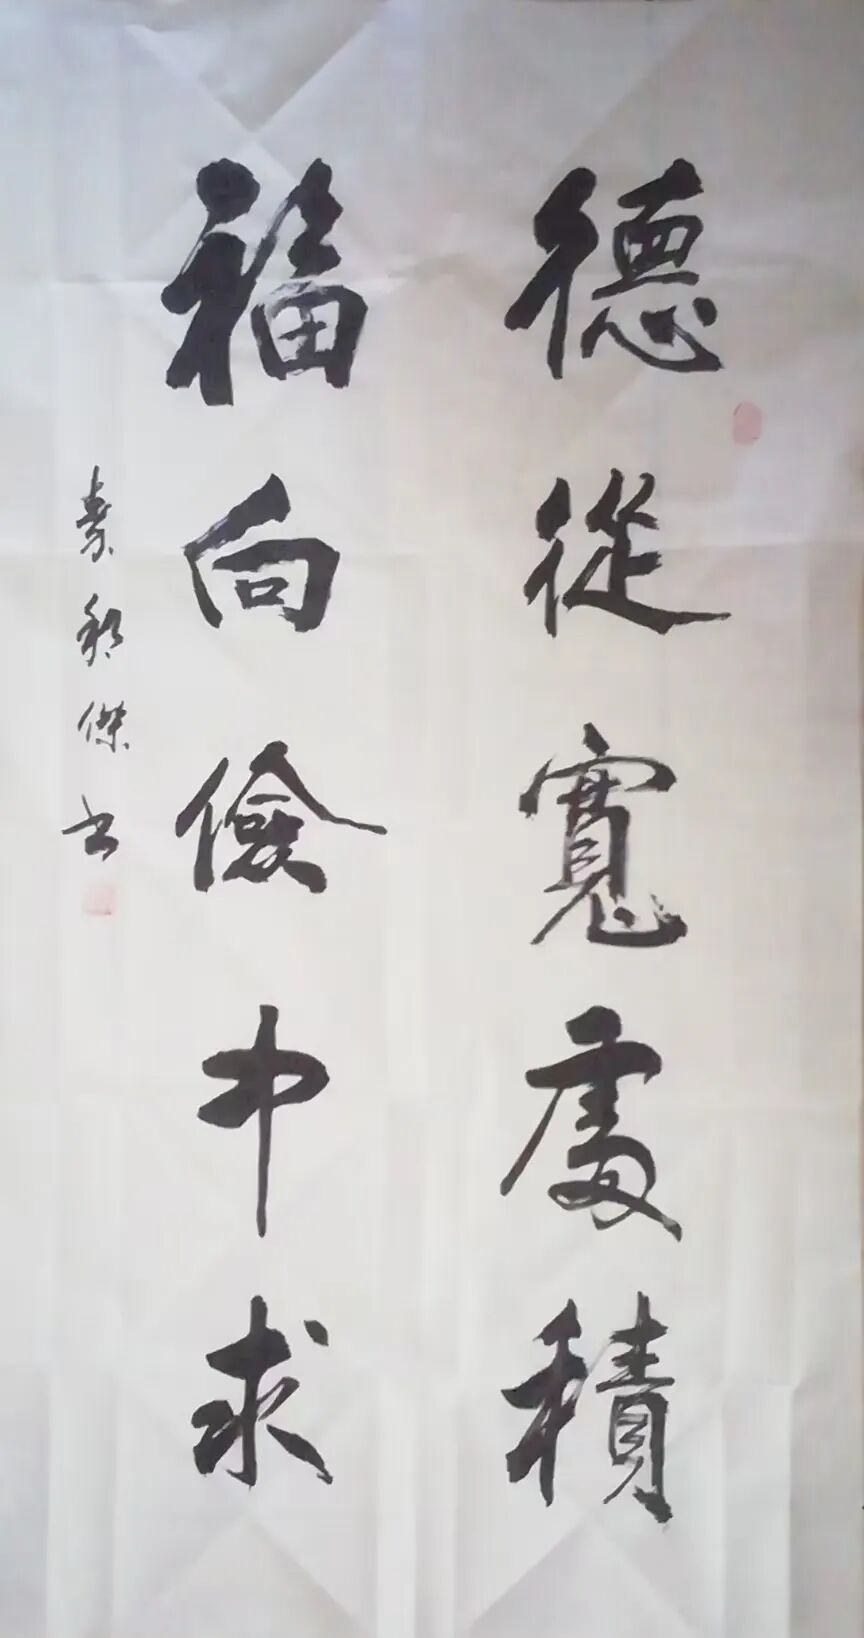 德從寬處積
福向儉中求
傑書